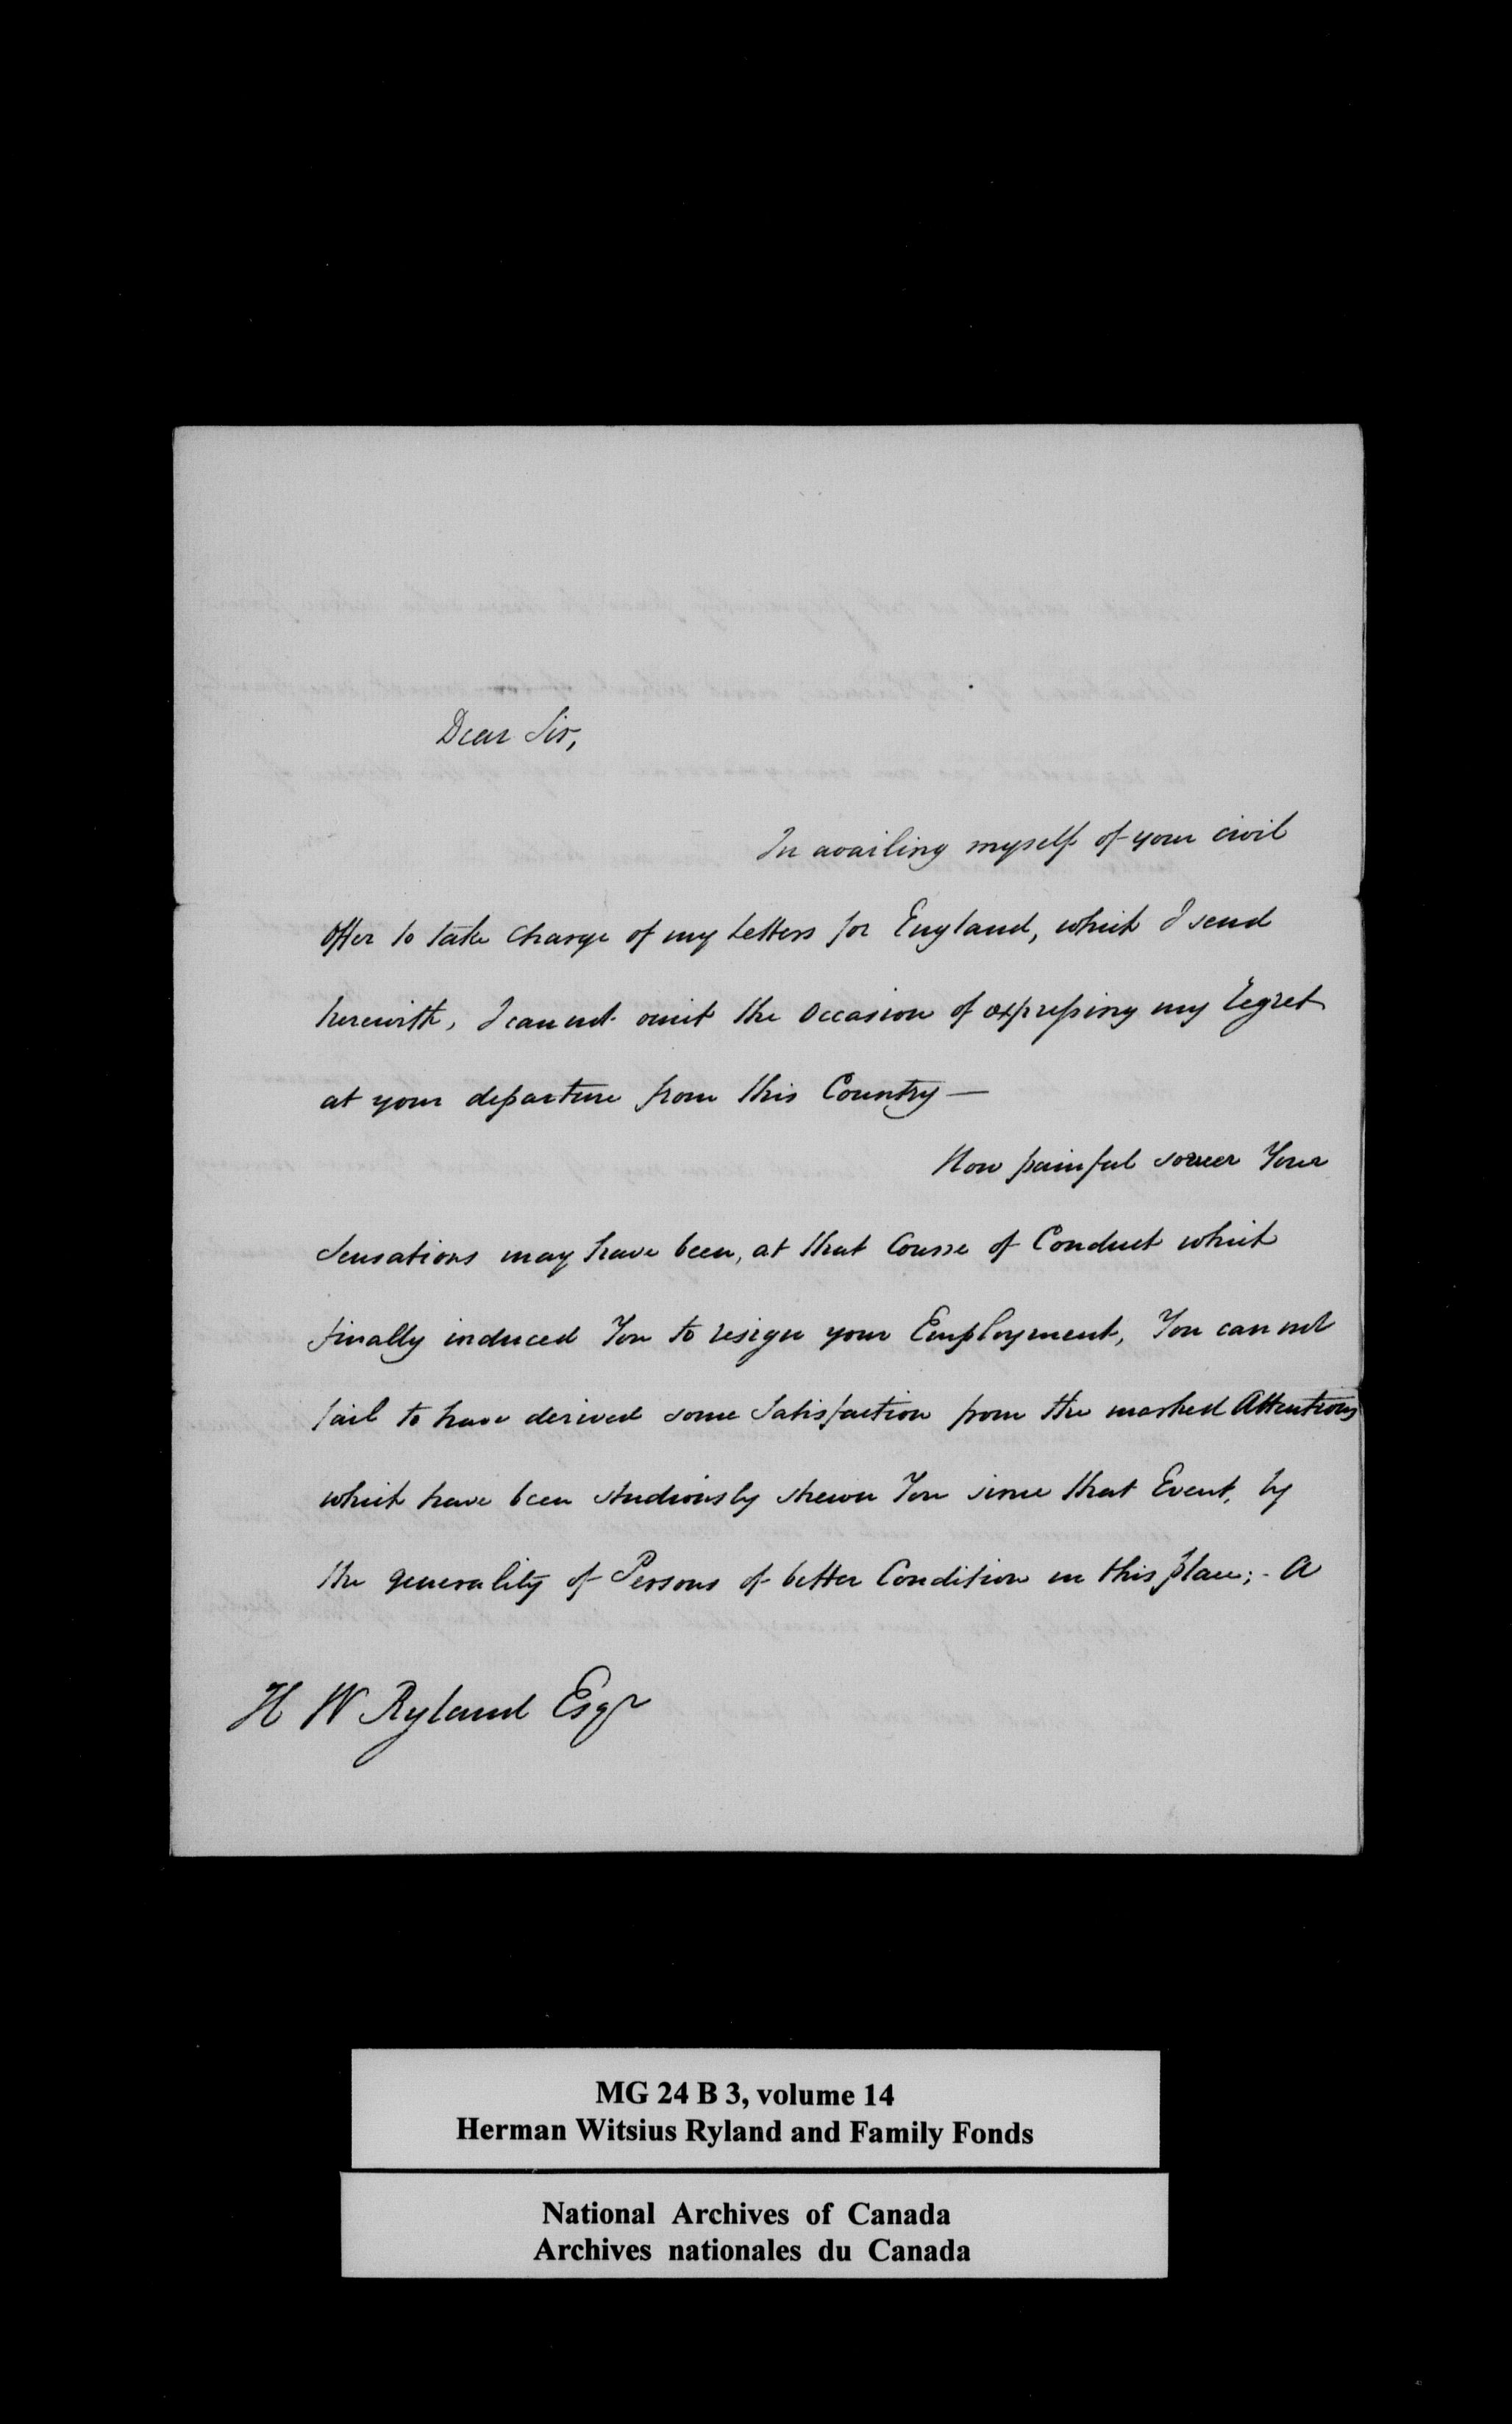 Dear Sir,
In availing myself of your civil
offer to take Charge of my Letters for England, which I send
herewith, I can not omit the Occasion of expressing my Regret
at your departure from this Country —
How painful soever Your
Sensations may have been, at that Course of Conduct which
finally induced You to resign your Employment, You can not
fail to have derived some Satisfaction from the marked Attentions
which have been studiously shewn You since that Event, by
the generality of Persons of better Condition in this place; - A
H W Ryland Esqr
MG 24 B 3, volume 14
Herman Witsius Ryland and Family Fonds
National Archives of Canada
Archives nationales du Canada